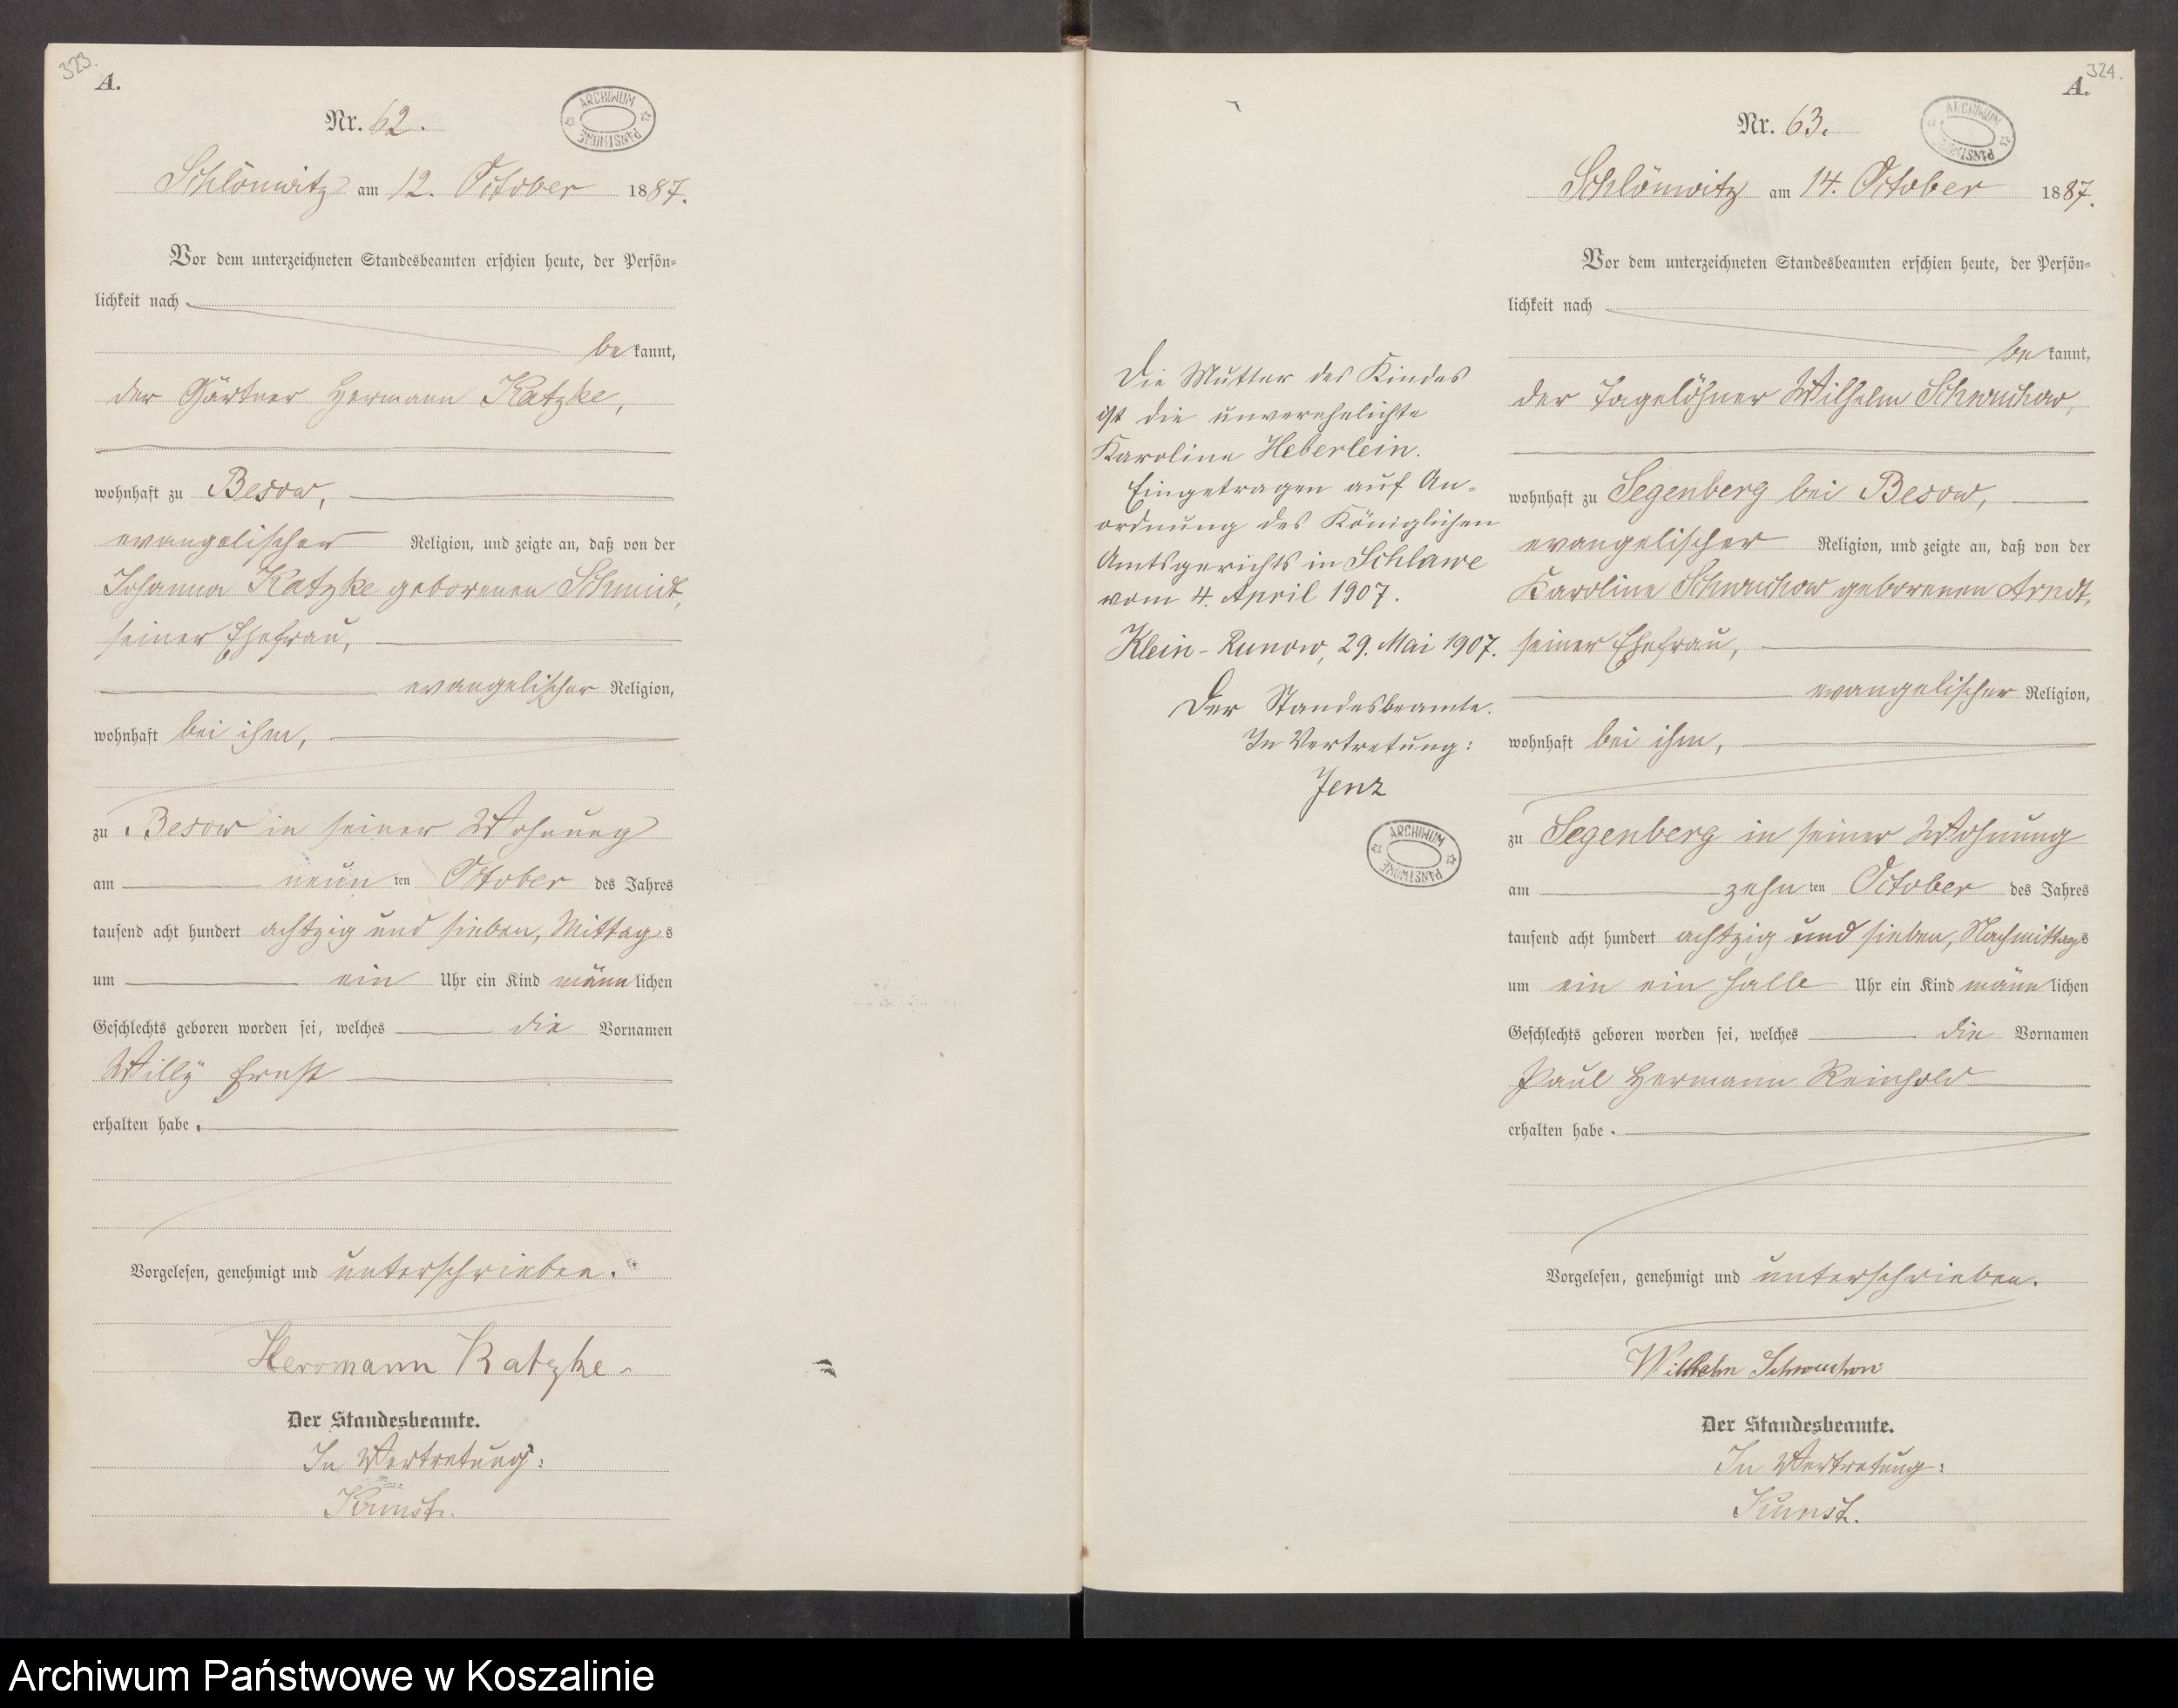 323.
A.
Nr. 62.
ARCHIWUM PAŃSTWOWE
Schlönwitz am 12. October 1887.
Vor dem unterzeichneten Standesbeamten erschien heute, der Persön-
lichkeit nach
be kannt,
der Gärtner Hermann Katzke,
wohnhaft zu Besow,
evangelischer Religion, und zeigte an, daß von der
Johanna Katzke geborenen Schmidt,
seiner Ehefrau,
evangelischer Religion,
wohnhaft bei ihm,
zu Besow in seiner Wohnung
am neun ten October des Jahres
tausend acht hundert achtzig und sieben, Mittags
um ein Uhr ein Kind männlichen
Geschlechts geboren worden sei, welches die Vornamen
Willy Ernst
erhalten habe.
Vorgelesen, genehmigt und unterschrieben.
Herrmann Katzke
Der Standesbeamte.
In Vertretung:
Kunst.
Die Mutter des Kindes
ist die unverehelichte
Karoline Heberlein.
Eingetragen auf An-
ordnung des Königlichen
Amtsgerichts in Schlawe
vom 4. April 1907.
Klein-Runow, 29. Mai 1907.
Der Standesbeamte.
In Vertretung:
Jenz
ARCHIWUM PAŃSTWOWE
324.
A.
Nr. 63.
ARCHIWUM PAŃSTWOWE
Schlönwitz am 14. October 1887.
Vor dem unterzeichneten Standesbeamten erschien heute, der Persön-
lichkeit nach
be kannt,
der Tagelöhner Wilhelm Schwuchow,
wohnhaft zu Segenberg bei Besow,
evangelischer Religion, und zeigte an, daß von der
Karoline Schwuchow geborenen Arndt,
seiner Ehefrau,
evangelischer Religion,
wohnhaft bei ihm,
zu Segenberg in seiner Wohnung
am zehn ten October des Jahres
tausend acht hundert achtzig und sieben, Nachmittags
um ein ein halb Uhr ein Kind männlichen
Geschlechts geboren worden sei, welches die Vornamen
Paul Hermann Reinhold
erhalten habe.
Vorgelesen, genehmigt und unterschrieben.
Wilhelm Schwuchow
Der Standesbeamte.
In Vertretung:
Kunst.
Archiwum Państwowe w Koszalinie